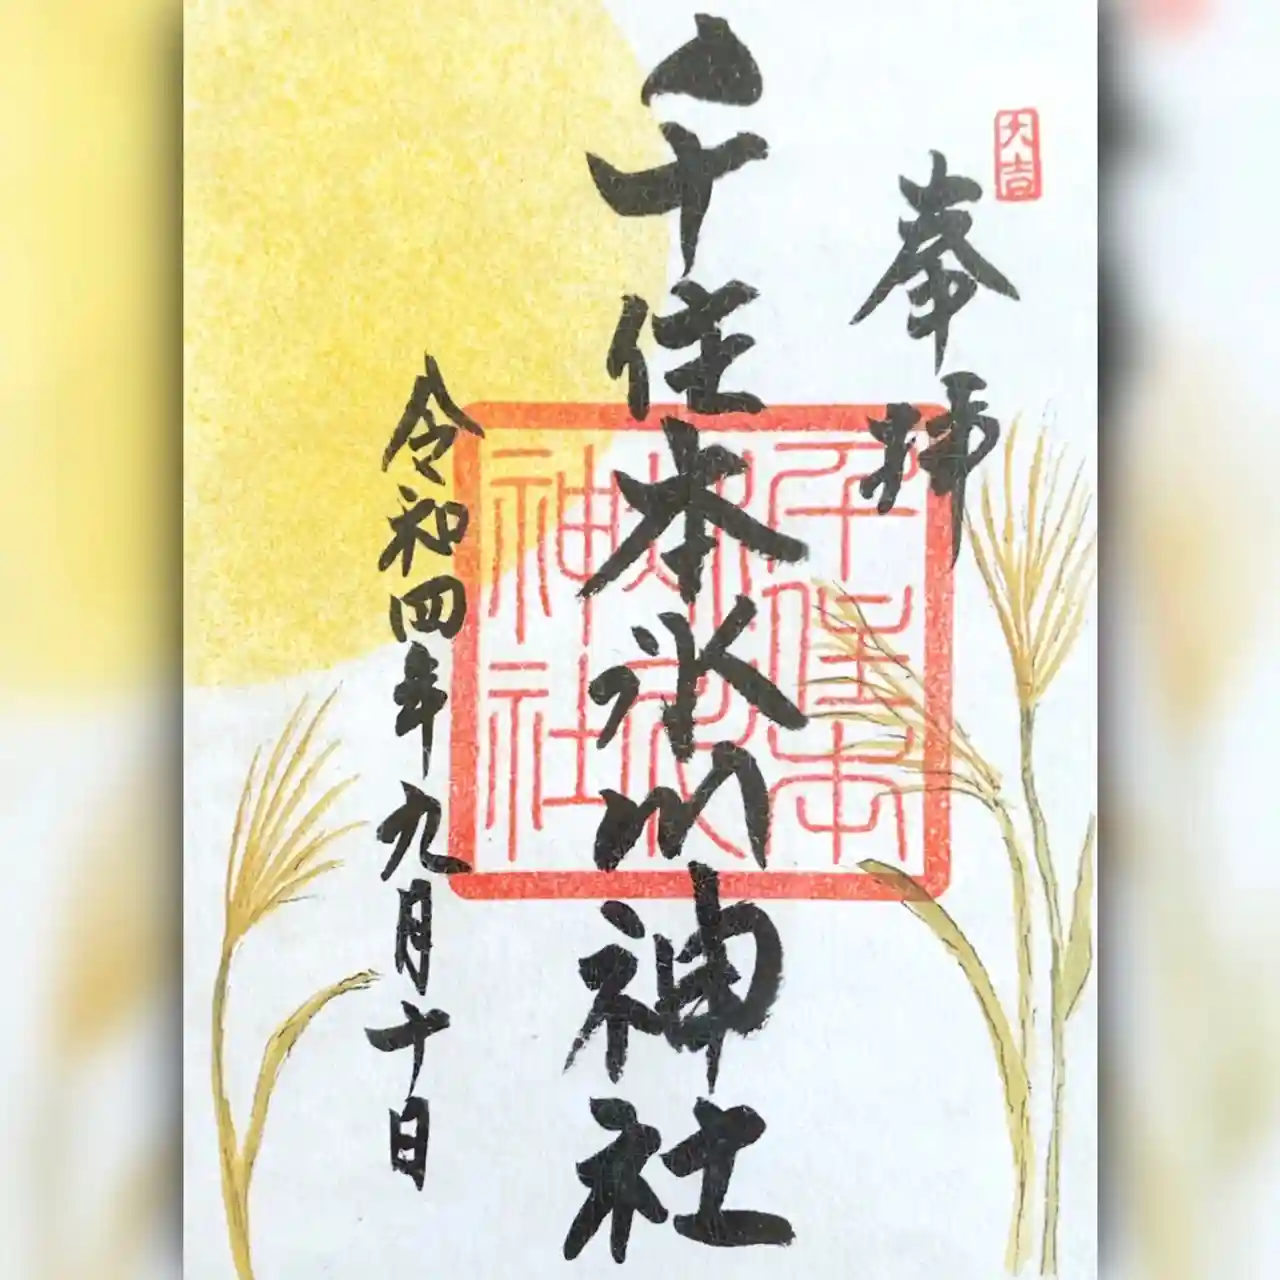 大吉
奉拝
千住本氷川神社
令和四年九月十日
千住本
神社